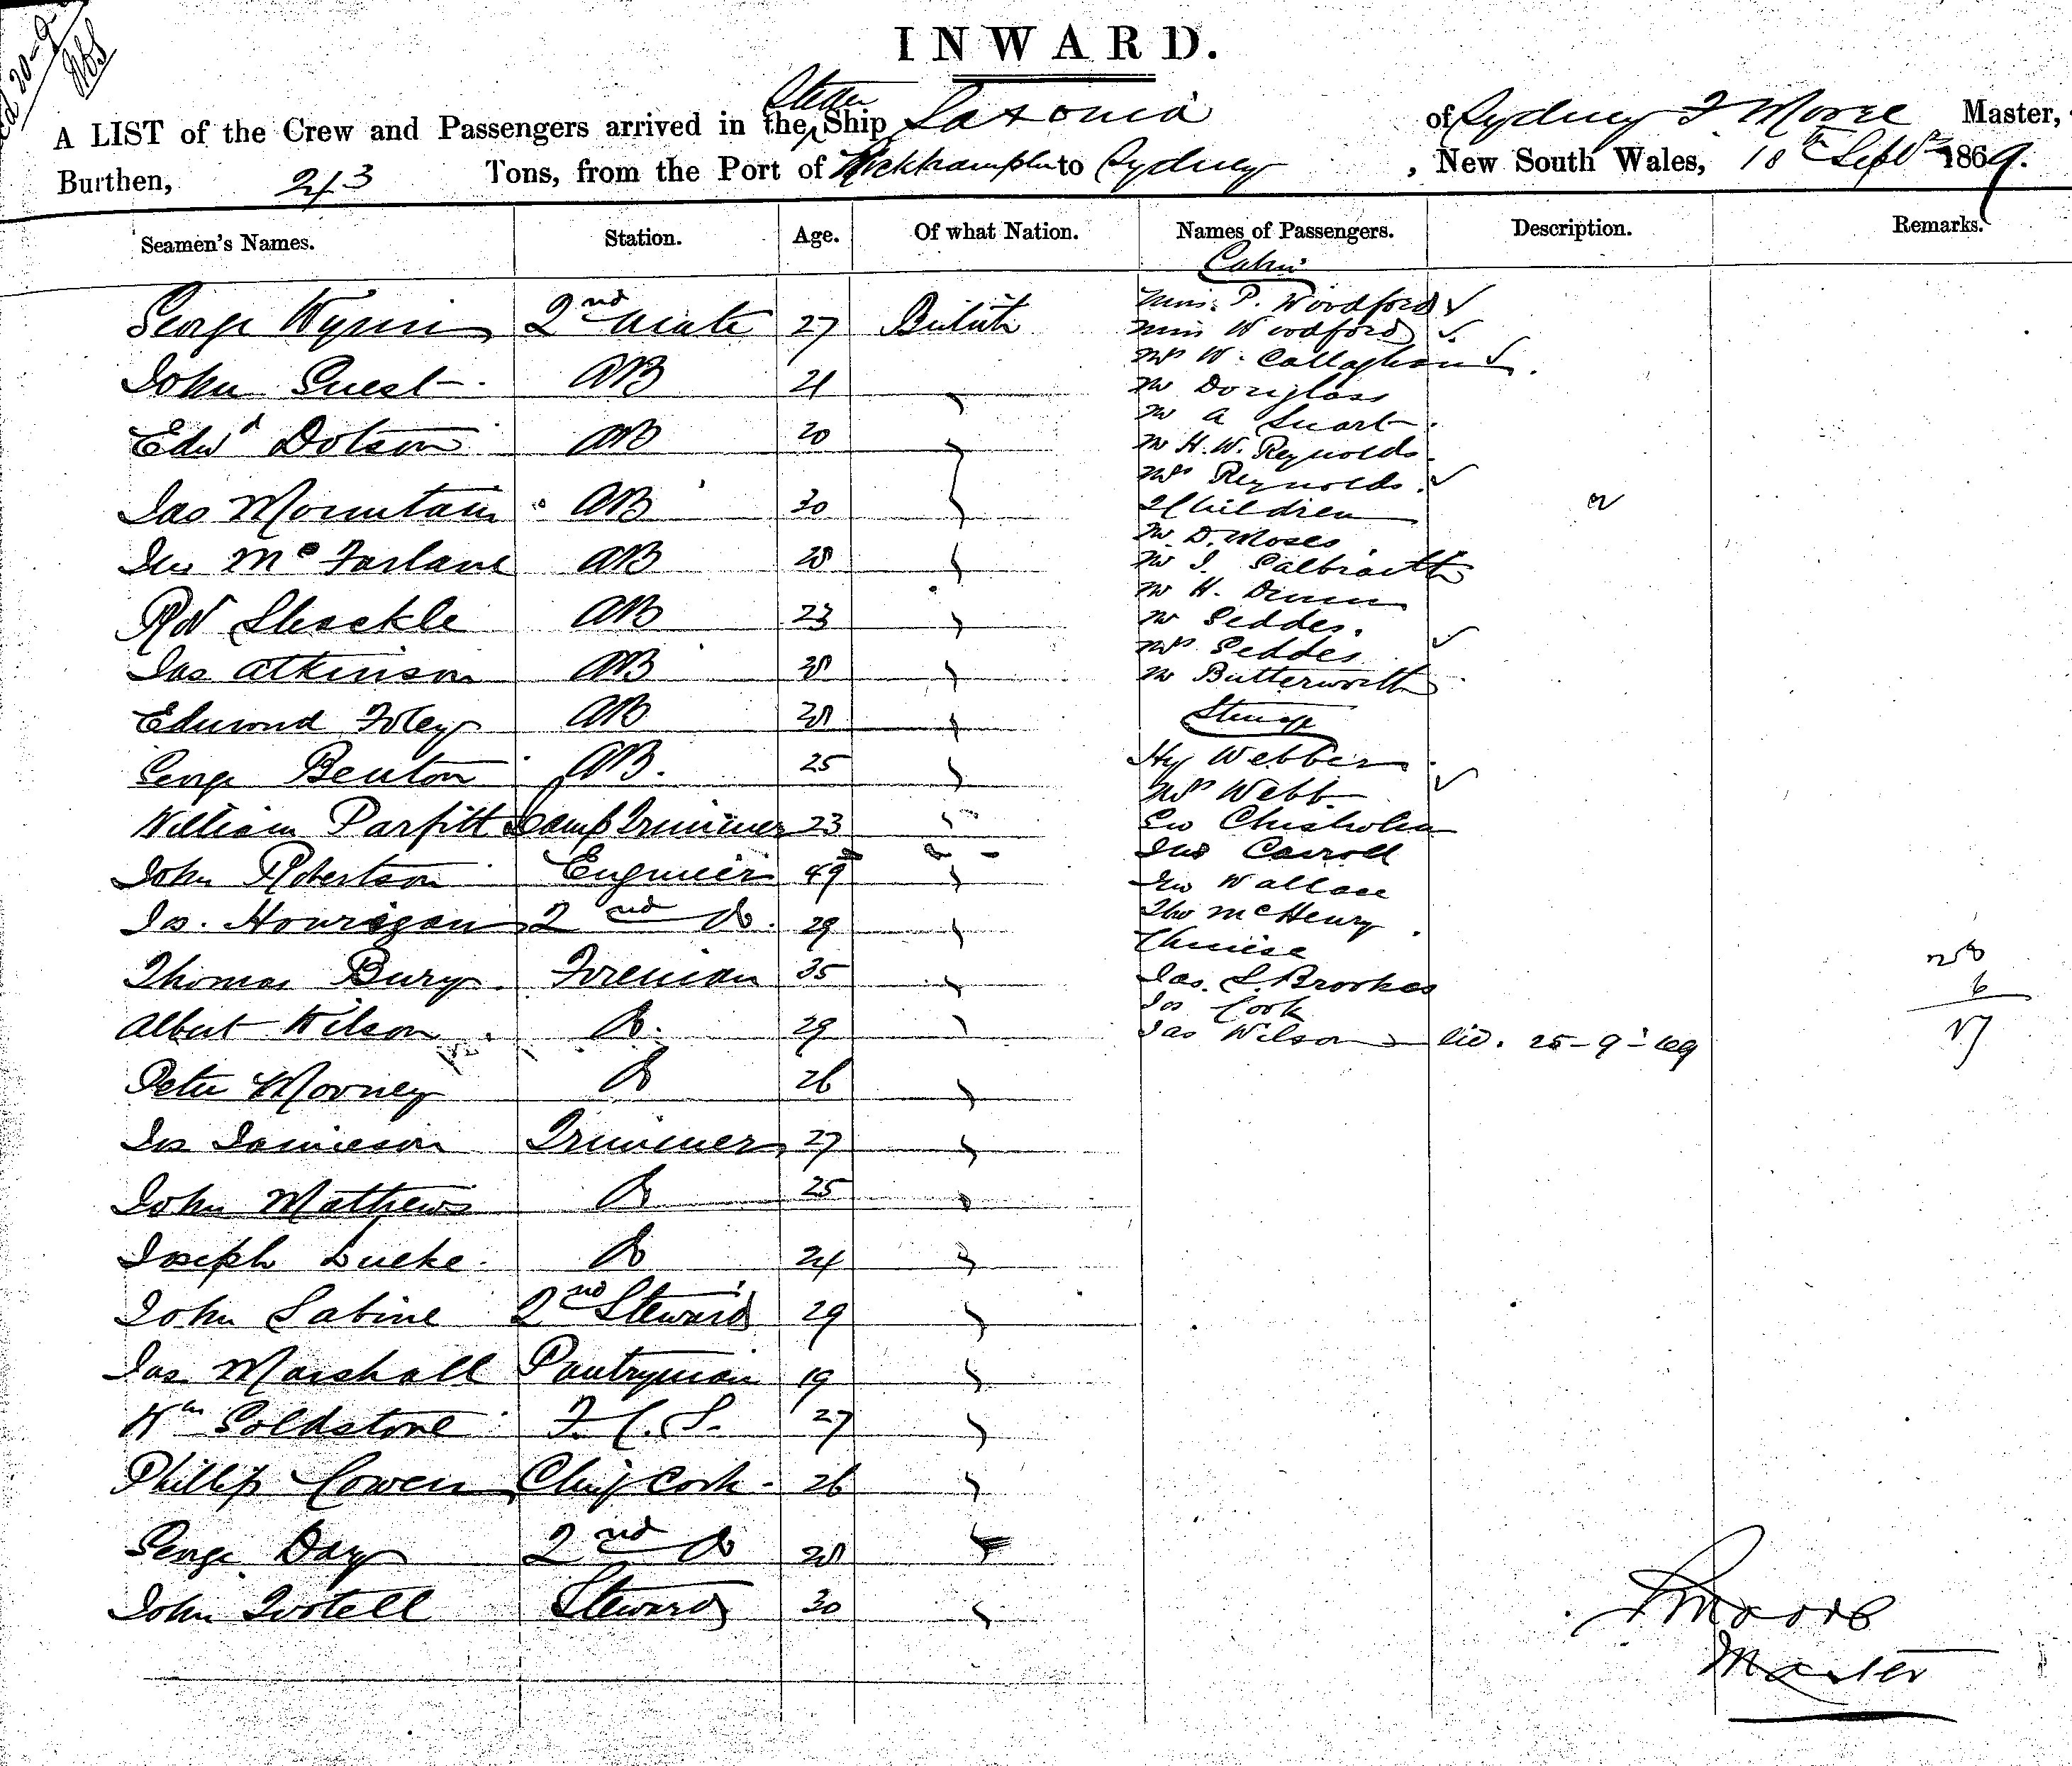 INWARD.
A LIST of the Crew and Passengers arrived in the Steam Ship Saxonia of Sydney F Moore Master,
Burthen, 243 Tons, from the Port of Rockhampton to Sydney, New South Wales, 18th Septr 1869.
Seamen's Names. Station. Age. Of what Nation. Names of Passengers. Description. Remarks.
George Wynn 2nd Mate 27 British
John Guest AB 21
Edwd Dotson AB 20
Jas Mountain AB 30
Jno McFarlane AB 28
Rd Shackle AB 23
Jas Atkinson AB 28
Edmond Foley AB 28
George Benton AB. 25
William Parfitt Lamp Trimmer 23
John Robertson Engineer 49
Jas. Hourigan 2nd Do. 29
Thomas Bury Foreman 35
Albert Wilson Do. 29
Peter Mooney Do 26
Jas Jamieson Trimmer 27
John Mathews Do 25
Joseph Lucke Do 24
John Sabine 2nd Steward 29
Jas Marshall Pantryman 19
Wm Goldstone F.C.S. 27
Phillip Cowen Chief Cook 26
George Day 2nd Do 28
John Tootell Steward 30
Cabin
Miss. P. Woodford
Miss Woodford
Mrs W. Callaghan
Mr Douglass
Mr A Stuart
Mr H. W. Reynolds
Mrs Reynolds
2 Children
Mr. D. Moses
Mr J. Galbraith
Mr H. Dinun
Mr Geddes.
Mrs Geddes
Mr Butterworth
Steerage
Hy Webber
Mrs Webb
Geo Chisholm
Jno Carroll
Jno Wallace
Tho McHenry
Chinese
Jas. S. Brookes
Jas Cook
Jas Wilson 25-9-69
6
F Moore
Master